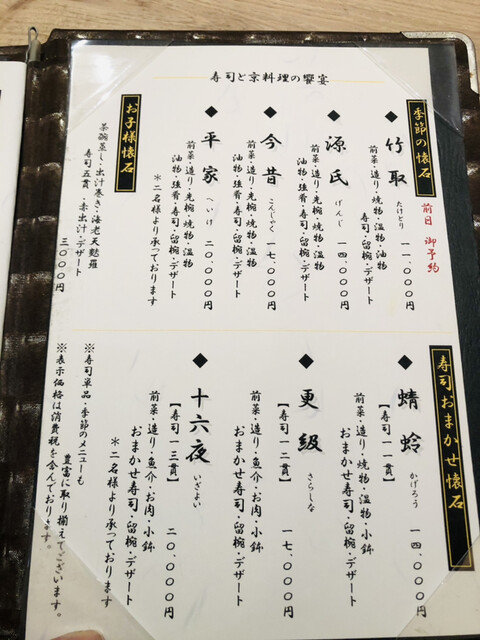 寿司と京料理の饗宴
季節の懐石
前日 御予約
◆竹取 たけとり 一一、〇〇〇円
前菜・造り・焼物・温物・油物
寿司・留椀・デザート
◆源氏 げんじ 一四、〇〇〇円
前菜・造り・焼物・温物
油物・強肴・寿司・留椀・デザート
◆今昔 こんじゃく 一七、〇〇〇円
前菜・造り・先椀・焼物・温物
油物・強肴・寿司・留椀・デザート
◆平家 へいけ 二〇、〇〇〇円
前菜・造り・先椀・焼物・温物
油物・強肴・寿司・留椀・デザート
＊二名様より承っております
お子様懐石
茶碗蒸し・出汁巻き・海老天麩羅
寿司五貫・赤出汁・デザート
三〇〇〇円
寿司おまかせ懐石
◆蜻蛉 かげろう 一四、〇〇〇円
【寿司一一貫】
前菜・造り・焼物・温物・小鉢
おまかせ寿司・留椀・デザート
◆更級 さらしな 一七、〇〇〇円
【寿司一二貫】
前菜・造り・魚介・お肉・小鉢
おまかせ寿司・留椀・デザート
◆十六夜 いざよい 二〇、〇〇〇円
【寿司一三貫】
前菜・造り・魚介・お肉・小鉢
おまかせ寿司・留椀・デザート
＊二名様より承っております
※寿司単品・季節のメニューも
豊富に取り揃えてございます。
※表示価格は消費税を含んでおります。